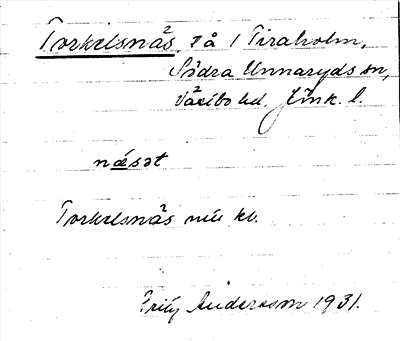 Torkelsnäs, Få / Tiraholm,
Södra Unnaryds sn,
Västbo hd. Jönk. l.
næsət
Torkelsnäs
Fritz Andersson 1931.